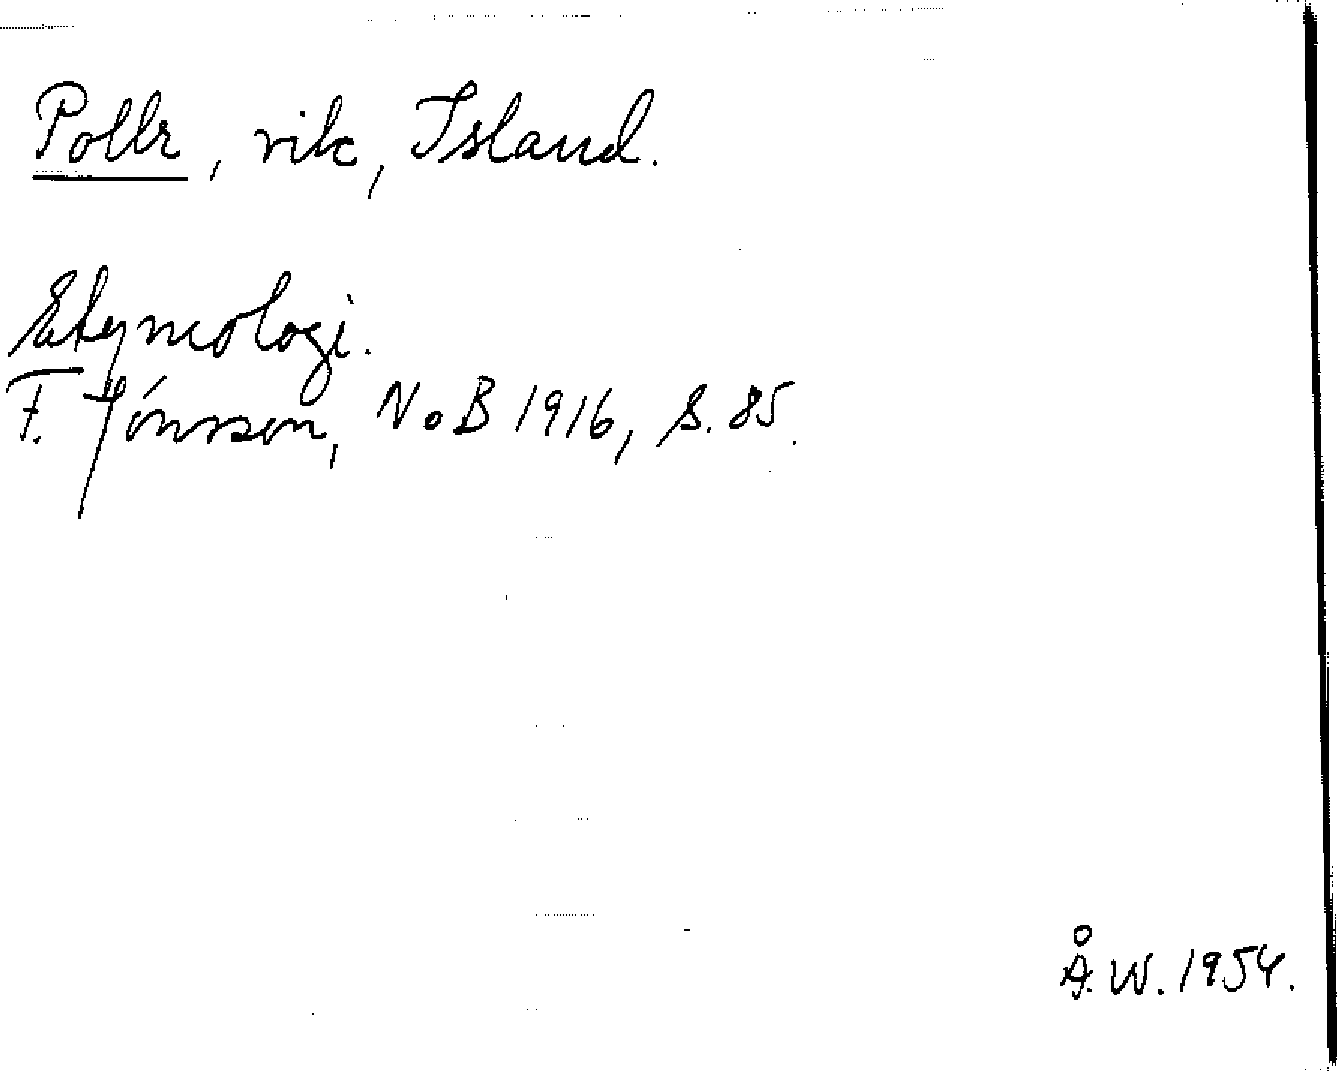 Pollr, vik, Island.
Etymologi.
F. Jónsson, NoB 1916, s. 85.
Å. W. 1954.